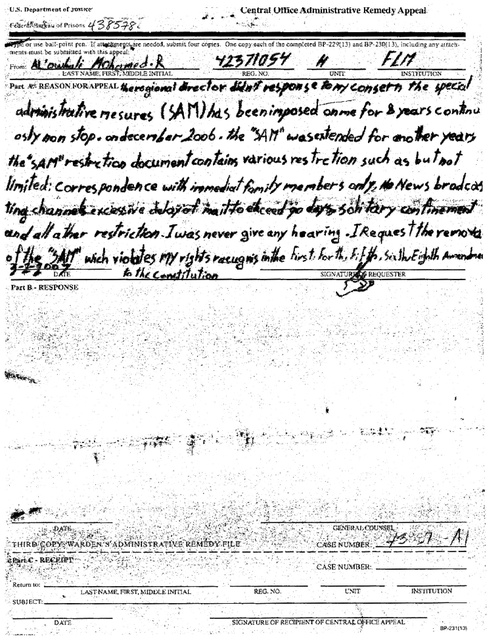 U.S. Department of Justice Central Office Administrative Remedy Appeal
Federal Bureau of Prisons 438578
Type or use ball-point pen. If attachments are needed, submit four copies. One copy each of the completed BP-229(13) and BP-230(13), including any attach-
ments must be submitted with this appeal.
From: Al'owhali Mohamed.R 42371054 H FLM
LAST NAME, FIRST, MIDDLE INITIAL REG. NO. UNIT INSTITUTION
Part A- REASON FOR APPEAL the regional director didn't response to my consern the special
administrative mesures (SAM) has been imposed on me for 8 years continu
osly non stop. on december, 2006. the "SAM" was extended for another years
the "SAM" restrction document contains various restrction such as but not
limited: Correspondence with immediat family members only. No News brodcas
ting channels excessive delay of mail to exceed 90 days, solitary confinement
and all ather restriction. I was never give any hearing. I Request the remova
of the "SAM" wich violates MY rights recugnis in the First, Forth, Fifth, Sixth, Eighth Amendmen
3-2-2007 to the Constitution
DATE SIGNATURE REQUESTER
Part B - RESPONSE
DATE GENERAL COUNSEL
THIRD COPY: WARDEN'S ADMINISTRATIVE REMEDY FILE CASE NUMBER: -A1
Part C - RECEIPT
CASE NUMBER:
Return to:
LAST NAME, FIRST, MIDDLE INITIAL REG. NO. UNIT INSTITUTION
SUBJECT:
DATE SIGNATURE OF RECIPIENT OF CENTRAL OFFICE APPEAL
BP-231(13)